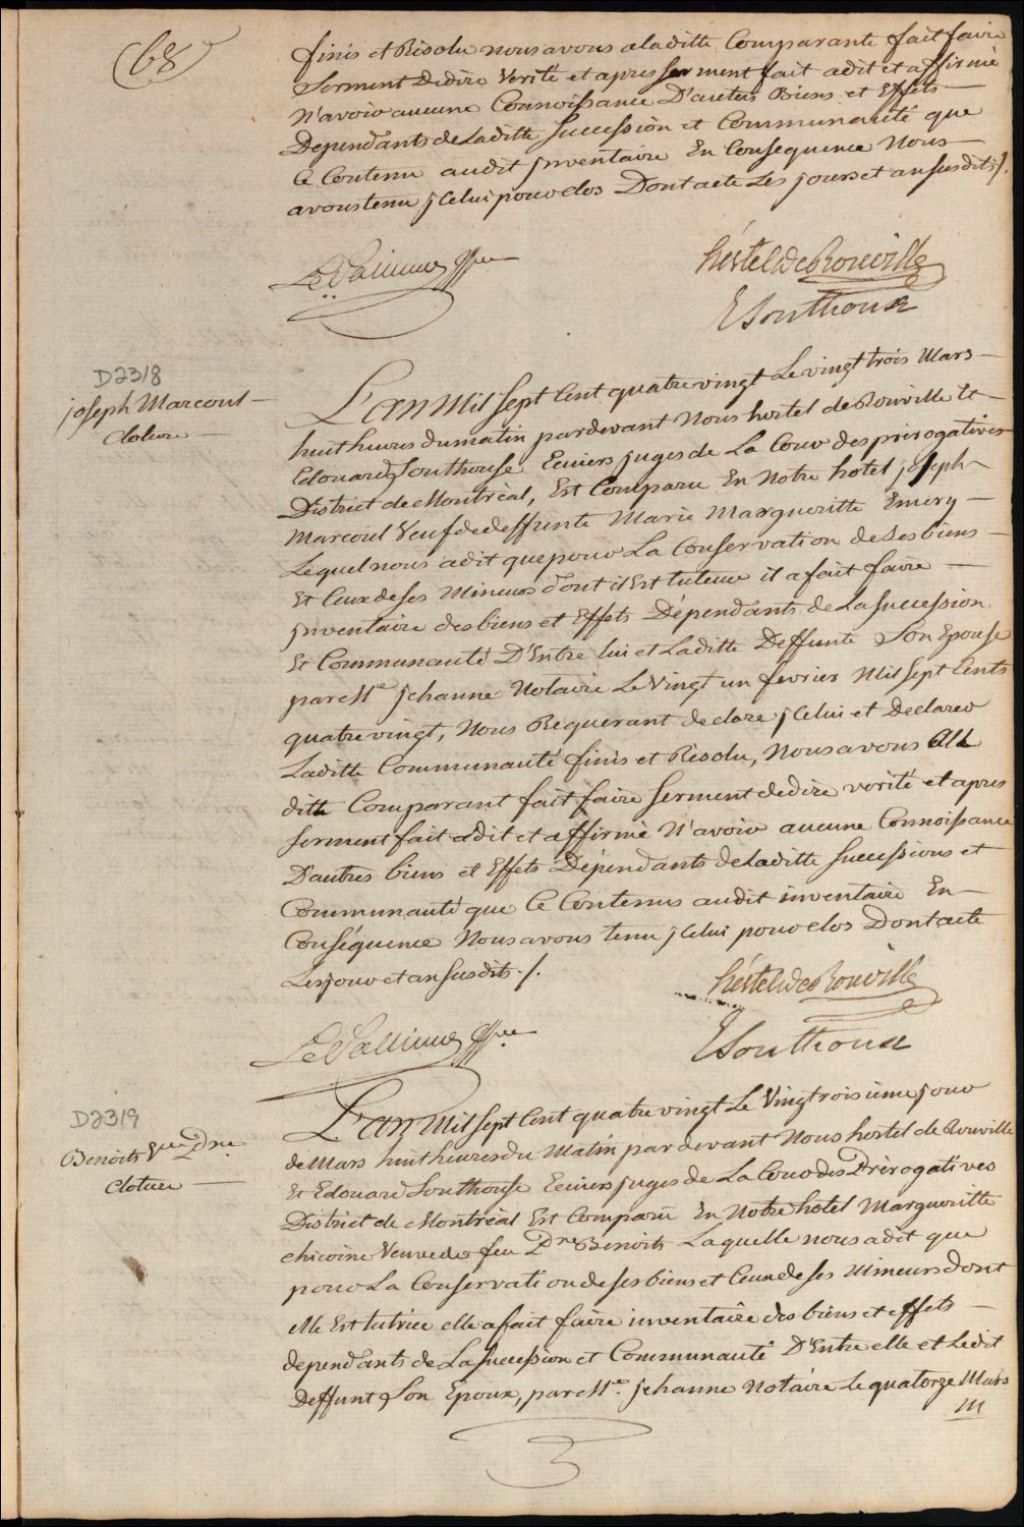 68
finis et Résolu nous avons a laditte Comparante fait faire
Serment de dire Verité et apres serment fait a dit et affirmé
N'avoir aucune Connoissance D'autres Biens et Effets
Dependants de Laditte Succession et Communauté que
Ce Contenu audit jnventaire En Consequence Nous
avons tenu jCelui pour clos Dont acte Les jours et an susdits ./.
hertel de Rouville
E Southouse
D2318
joseph Marcoul
Cloture
L'an Mil Sept Cent quatre vingt Le vingt trois Mars
huit heures du matin pardevant Nous hertel de Rouville Et
Edouard Southouse Ecuiers juges de La Cour des prerogatives
District de Montréal, Est Comparu En Notre hotel joseph
Marcoul Veuf de deffunte Marie Margueritte Emery
Lequel nous a dit que pour La Conservation de Ses biens
Et Ceux de ses Mineurs dont il Est tuteur il a fait faire
jnventaire des biens et Effets Dépendants de La Succession
Et Communauté D'Entre lui et Laditte Deffunte Son Epouse
par Me jehanne Notaire Le Vingt un fevrier Mil Sept Cents
quatre vingt, Nous Requerant de clore jCelui et Declarer
Laditte Communauté finis et Résolu, Nous avons au
ditt Comparant fait faire Serment de dire verité et apres
serment fait a dit et affirmé N'avoir aucune Connoissance
D'autres biens et Effets Dépendants de Laditte Successions et
Communauté que Ce Contenus audit inventaire En
Conséquence Nous avons tenu jCelui pour clos Dont acte
Les jour et an Susdits ./.
hertel de Rouville
E Southouse
D2319
Benoits Ve Dre
Cloture
L'an Mil Sept Cent quatre vingt Le Vingt roisieme jour
de Mars huit heures du Matin par devant Nous hertel de Rouville
Et Edouard Southouse Ecuiers juges de La Cour des Prérogatives
District de Montréal Est Comparu En Notre hotel Margueritte
chicoine Veuve de feu Dre Benoits Laquelle nous a dit que
pour La Conservation de ses biens et Ceux de ses Mineurs dont
elle Est tutrice elle a fait faire inventaire des biens et effets
dependants de La Succession et Communauté D'Entre elle et Ledit
Deffunt Son Epoux, par Me jehanne Notaire Le quatorze Mars
M